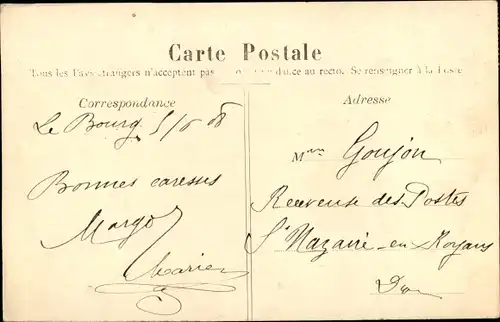 Carte Postale
Tous les Pays étrangers n'acceptent pas au recto. Se renseigner à la Poste
Correspondance
Le Bourg 5/6 08
Bonnes caresses
Margo
Marie
Adresse
Mme Goujon
Receveuse des Postes
St Nazaire-en-Royans